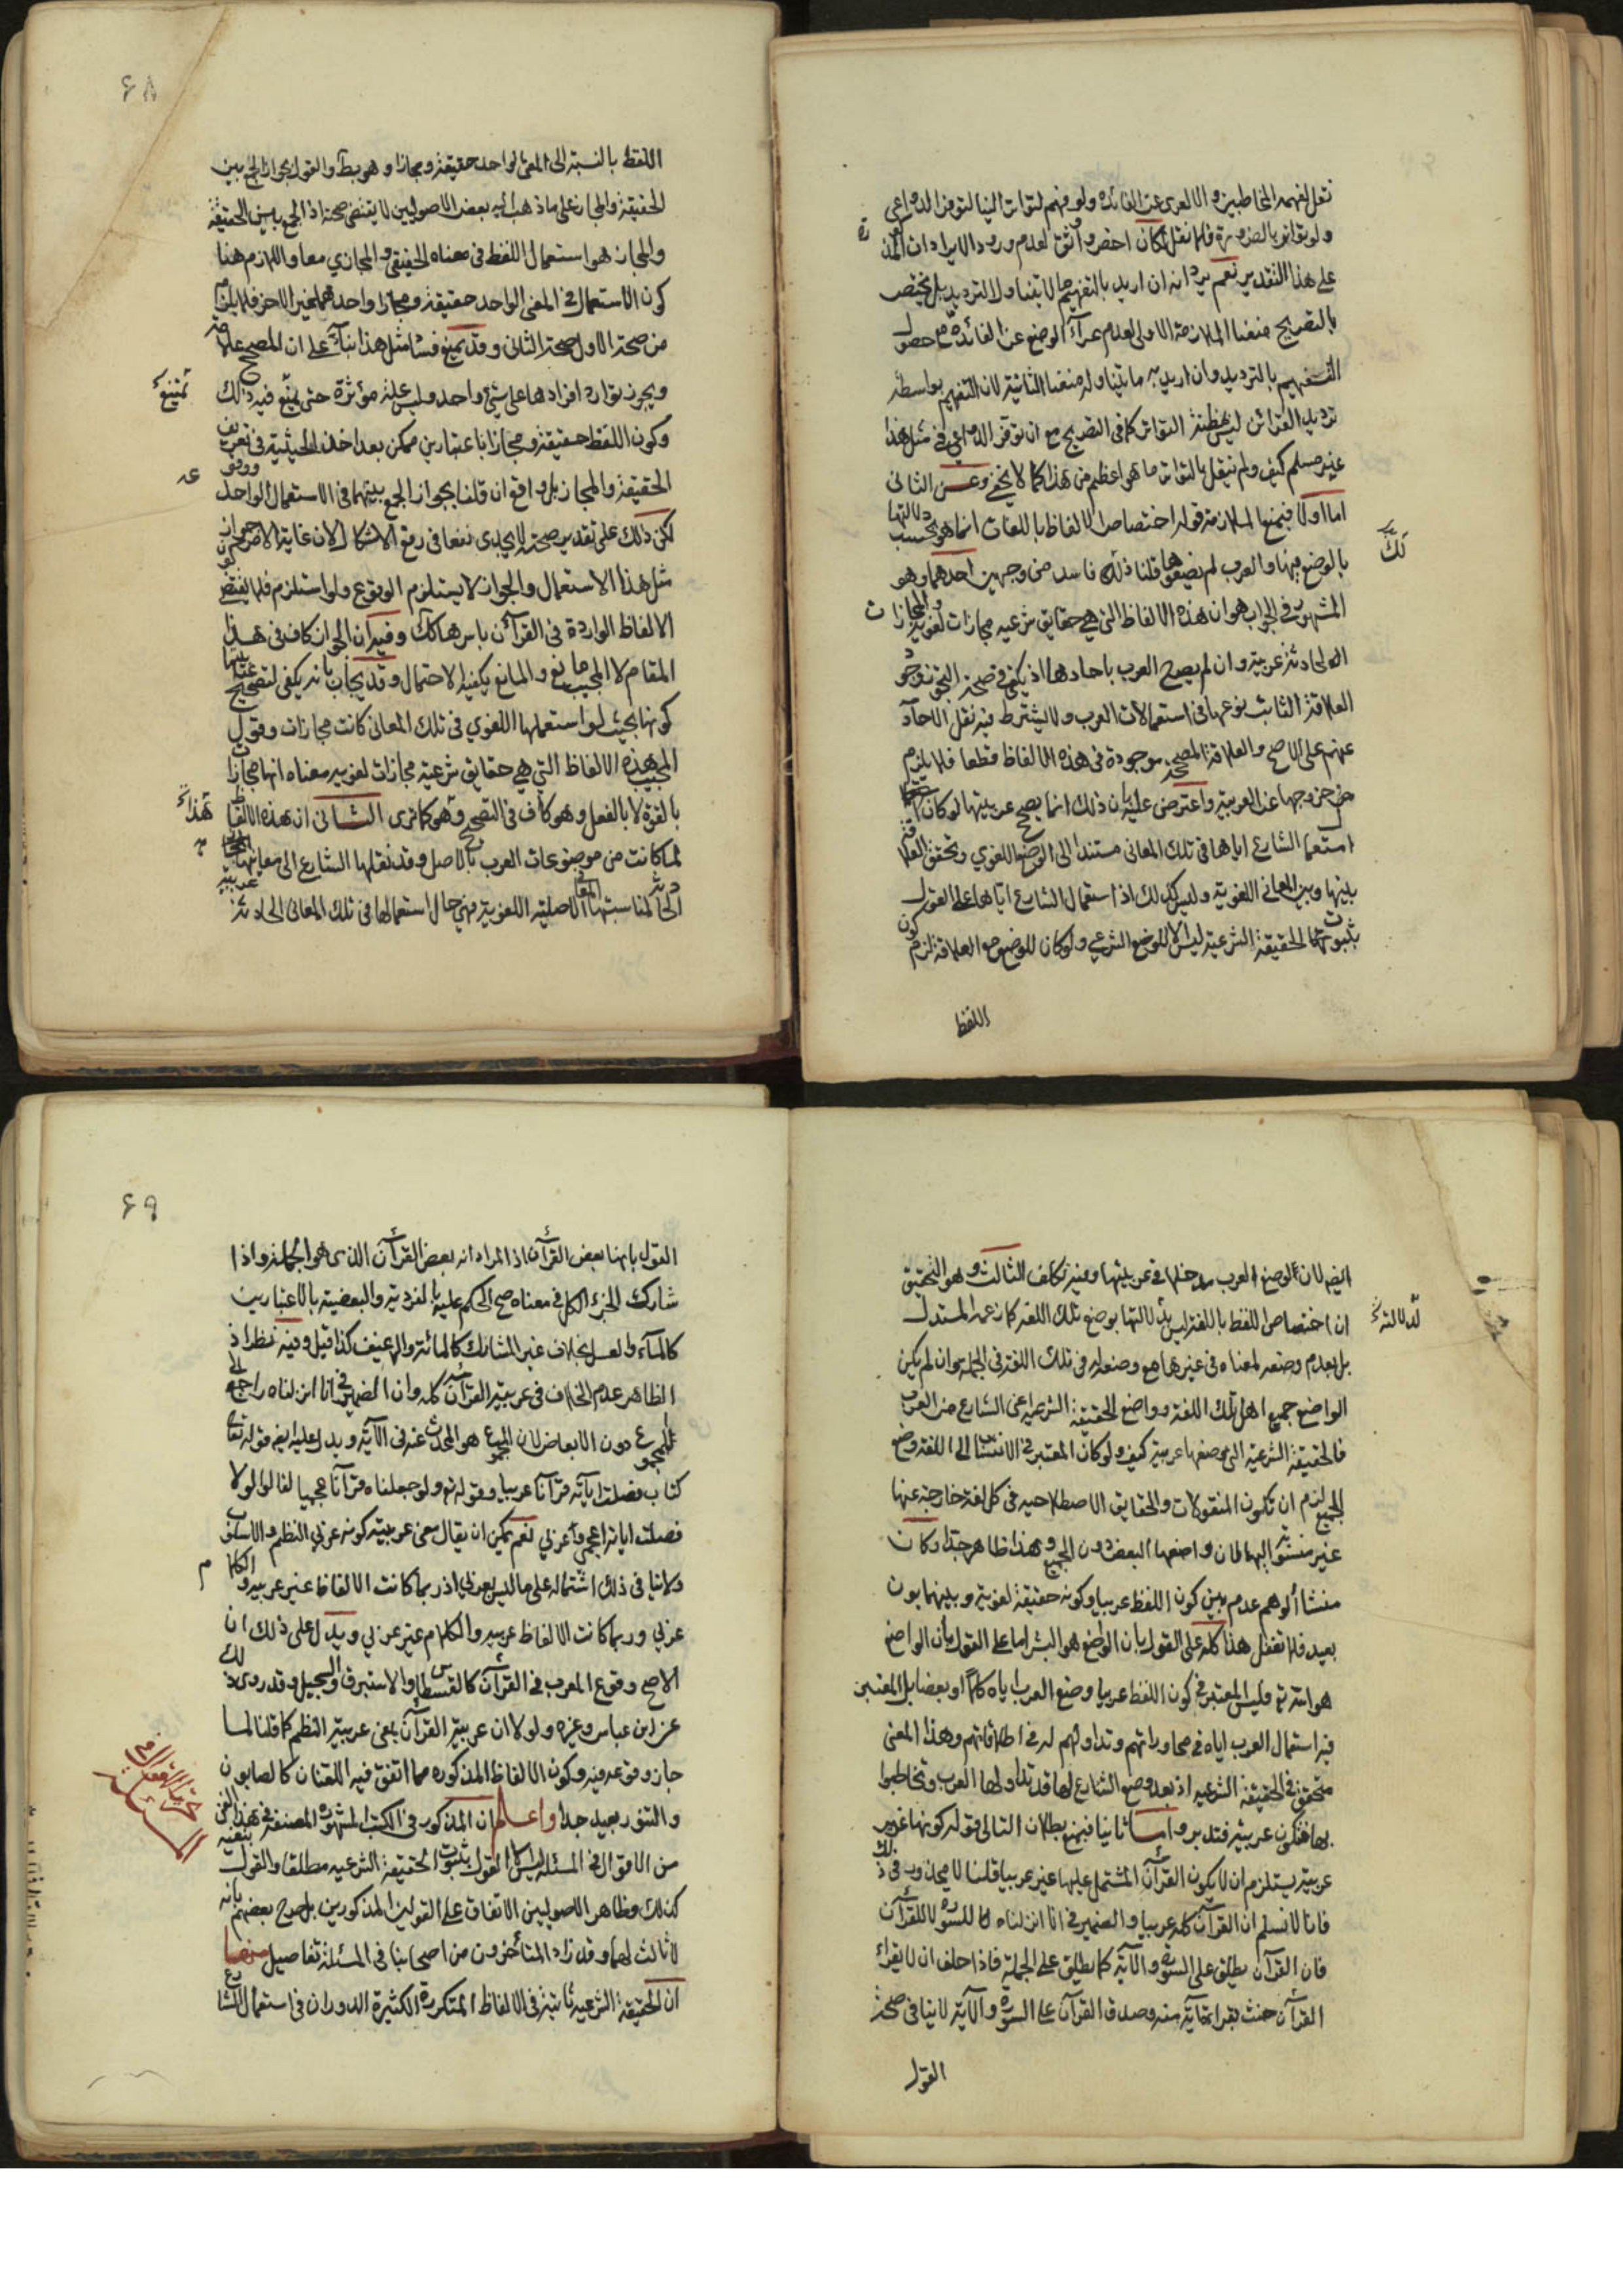 نقل لفهمه المخاطبين والا لعرى عن الفائدة ولو فهم لتواتر الينا لتوفر الدواعي
ولو تواتر بالضرورة فلما نقل لكان احضر واثق لعدم ورود الايرادات
على هذا التقدير نعم يرد انه ان اريد بالتفهيم ما لا يتناول الترديد بل يختص
بالتصريح منعنا الملازمة الاولى لعدم عراء الوضع عن الفائدة مع حصول
التفهيم بالترديد وان اريد به ما يتناوله منعنا الثانية لان التفهيم بواسطة
ترديد القرائن ليس مظنة التواتر كما في التصريح مع ان توفر الدواعي في مثل هذا
غير مسلم كيف ولم ينقل بالتواتر ما هو اعظم من هذا كما لا يخفى وعن الثاني
اما اولا فبمنع الملازمة قوله اختصاص الالفاظ باللغات انما هو بحسب دلالتها
بالوضع فيها والعرب لم يضعوها قلنا ذلك فاسد من وجهين احدهما وهو
المشهور في الجواب هو ان هذه الالفاظ التي هي حقايق شرعيه مجازات لغوية والمجازات
الحادثة عربية وان لم يصرح العرب باحادها اذ يكفي في صحة التجوز وجود
العلاقة الثابت نوعها في استعمالات العرب ولا يشترط فيه نقل الاحاد
عنهم على الاصح والعلاقة المصححة موجودة في هذه الالفاظ قطعا فلا يلزم
خروجها عن العربية واعترض عليه بان ذلك انما يصحح عربيتها لو كان
استعمال الشارع اياها في تلك المعاني مستندا الى الوضع اللغوي وتحقق العلاقة
بينها وبين المعاني اللغوية وليس كذلك اذ استعمال الشارع اياها على القول
بثبوت الحقيقة الشرعية ليس الا للوضع الشرعي ولو كان للوضع مع العلاقة لزم كون
اللفظ
٦٨
اللفظ بالنسبة الى المعنى الواحد حقيقة ومجازا وهو بط والقول بجواز الجمع بين
الحقيقة والمجاز على ما ذهب اليه بعض الاصوليين لا يقتضي صحته اذ الجمع بين الحقيقة
والمجاز هو استعمال اللفظ في معناه الحقيقي والمجازي معا واللازم هنا
كون الاستعمال في المعنى الواحد حقيقة ومجازا واحدهما غير الاخر فلا يلزم
من صحة الاول صحة الثاني وقد يمنع فساد مثل هذا بناء على ان المصحح علاقة
ويجوز توارد افرادها على شيء واحد وليس علة مؤثرة حتى يمتنع فيه ذلك
وكون اللفظ حقيقة ومجازا باعتبارين ممكن بعد اخذ الحيثية في تعريف
الحقيقة والمجاز بل واقع ان قلنا بجواز الجمع بينهما في الاستعمال الواحد
لكن ذلك على تقدير صحته لا يجدى نفعا في رفع الاشكال لان غاية الامر جواز
مثل هذا الاستعمال والجواز لا يستلزم الوقوع ولو استلزم فلا يقتضي
الالفاظ الواردة في القرآن باسرها كك وفيه ان الجواز كاف في هذا
المقام لان المجيب مانع والمانع يكفيه الاحتمال وقد يجاب بانه يكفي لتصحيح عربيتها
كونها بحيث لو استعملها اللغوي في تلك المعاني كانت مجازات وقول
المجيب هذه الالفاظ التي هي حقايق شرعية مجازات لغويه معناه انها مجازات
بالقوة لا بالفعل وهو كاف في التصحيح وهو كما ترى الثاني ان هذه الالفاظ
لما كانت من موضوعات العرب بالاصل وقد نقلها الشارع الى معانيها
الحادثة لمناسبتها المعاني الاصلية اللغوية فهي حال استعمالها في تلك المعاني الحادثة عربية
ايضا لان لوضع العرب مدخلا في عربيتها وفيه تكلف الثالث وهو التحقيق
ان اختصاص اللفظ باللغة ليس لدلالتها بوضع تلك اللغة كما زعمه المستدل
بل بعدم وضعه لمعناه في غيرها مع وضعه له في تلك اللغة في الجملة وان لم يكن
الواضع جميع اهل تلك اللغة وواضع الحقيقة الشرعية اعني الشارع من العرب
فالحقيقة الشرعية التي وضعها عربية كيف ولو كان المعتبر في الانتساب الى اللغة وضع
الجميع لزم ان تكون المنقولات والحقايق الاصطلاحيه في كل لغة خارجة عنها
غير منتسبة اليها لان واضعها البعض دون الجميع وهذا ظاهر جدا وكان
منشأ الوهم عدم بين كون اللفظ عربيا وكونه حقيقة لغوية وبينهما بون
بعيد فلا تغفل هذا كله على القول بان الواضع هو البشر اما على القول بان الواضع
هو الله تع فليس المعتبر في كون اللفظ عربيا وضع العرب اياه كلا او بعضا بل المعتبر
فيه استعمال العرب اياه في محاوراتهم وتداولهم له في اطلاقاتهم وهذا المعنى
متحقق في الحقيقة الشرعيه اذ بعد وضع الشارع لها قد تداولها العرب وتخاطبوا
بها فتكون عربية فتدبر واما ثانيا فبمنع بطلان التالي قوله كونها غير
عربية يستلزم ان لا يكون القرآن المشتمل عليها غير عربيا قلنا لا محذور في ذلك
فانا لا نسلم ان القرآن كله عربيا والضمير في انا انزلناه للسورة لا للقرآن
فان القرآن يطلق على السورة والآية كما يطلق على الجملة فاذا حلف ان لا يقراء
القرآن حنث بقرائة آية منه وصدق القرآن على السورة والآية لا ينافي صحة
القول
٦٩
القول بانها بعض القرآن اذ المراد انه بعض القرآن الذي هو الجملة واذا
شارك الجزء الكل في معناه صح الحكم عليه بالفردية والبعضية بالاعتبارين
كالماء والعسل بخلاف غير المشارك كالمائة والرغيف كذا قيل وفيه نظر اذ
الظاهر عدم الخلاف في عربية القرآن كله وان الضمير في انا انزلناه راجع الى
المجموع دون الابعاض لان المجموع هو المحدث عنه في الآية ويدل عليه ايضا قوله تعالى
كتاب فصلت آياته قرآنا عربيا وقوله تع ولو جعلناه قرآنا عجميا لقالوا لولا
فصلت اياته اعجمي وعربي نعم يمكن ان يقال معنى عربيته كونه عربي النظم والاسلوب
ولا ينافي ذلك اشتماله على ما ليس بعربي اذ ربما كانت الالفاظ غير عربيه والكلام
عربي وربما كانت الالفاظ عربيه والكلام غير عربي ويدل على ذلك ان
الاصح وقوع المعرب في القرآن كالقسطاس والاستبرق والسجيل وقد روى ذلك
عن ابن عباس وغيره ولولا ان عربية القرآن بمعنى عربية النظم كما قلنا لما
جاز وقوعه فيه وكون الالفاظ المذكوره مما اتفق فيه اللغتان كالصابون
والتنور بعيد جدا واعلم ان المذكور في الكتب المشهورة المصنفة في هذا الفن
من الاقوال في المسئلة ليس الا القول بثبوت الحقيقة الشرعيه مطلقا والقول بنفيه
كذلك وظاهر الاصوليين الاتفاق على القولين المذكورين بل صرح بعضهم بانه
لا ثالث لهما وقد زاد المتأخرون من اصحابنا في المسئلة تفاصيل منها
ان الحقيقة الشرعيه ثابتة في الالفاظ المتكررة الكثيرة الدوران في استعمال الشارع